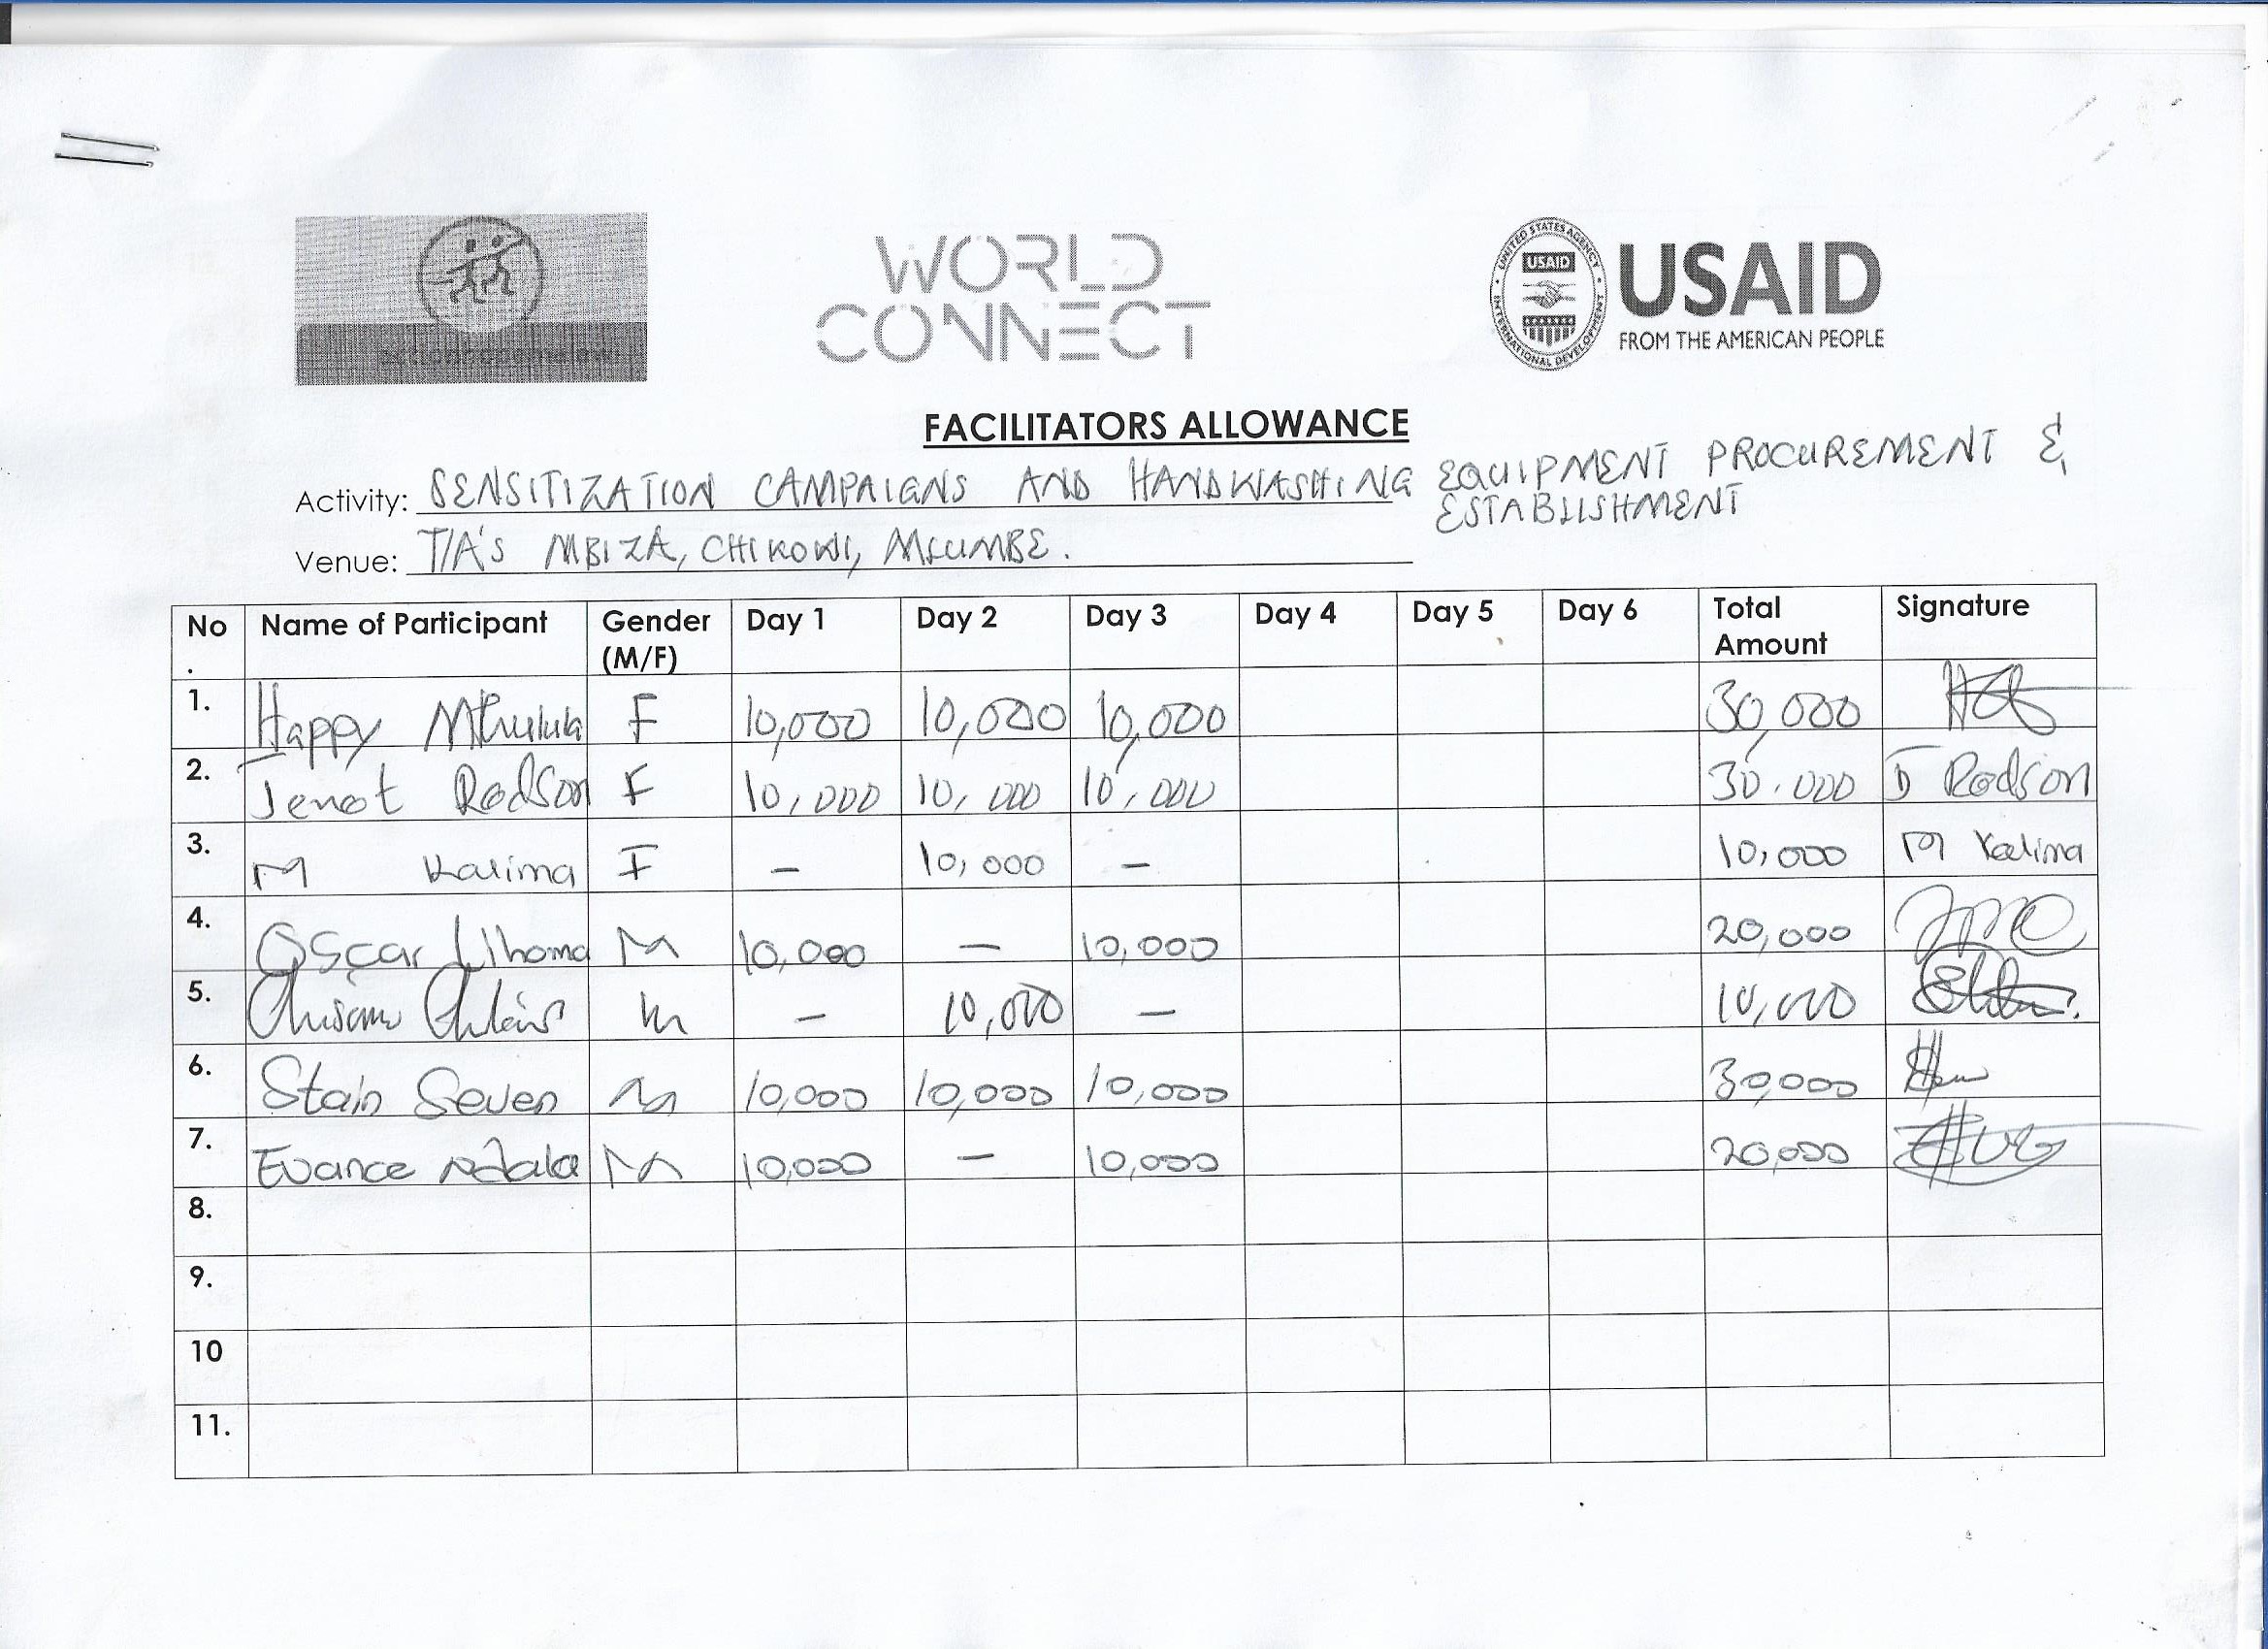 WORLD
CONNECT
UNITED STATES AGENCY
INTERNATIONAL DEVELOPMENT
USAID
USAID
FROM THE AMERICAN PEOPLE
FACILITATORS ALLOWANCE
Activity: SENSITIZATION CAMPAIGNS AND HANDWASHING EQUIPMENT PROCUREMENT &
ESTABLISHMENT
Venue: T/A'S MBIZA, CHIKOWI, MLUMBE.
No. Name of Participant Gender (M/F) Day 1 Day 2 Day 3 Day 4 Day 5 Day 6 Total Amount Signature
1. Happy F 10,000 10,000 10,000 30,000
2. Jenet Rodson F 10,000 10,000 10,000 30,000 J Rodson
3. M Kalima F - 10,000 - 10,000 M Kalima
4. Oscar M 10,000 - 10,000 20,000
5. M - 10,000 - 10,000
6. Stain Seven M 10,000 10,000 10,000 30,000
7. Evance M 10,000 - 10,000 20,000
8.
9.
10
11.